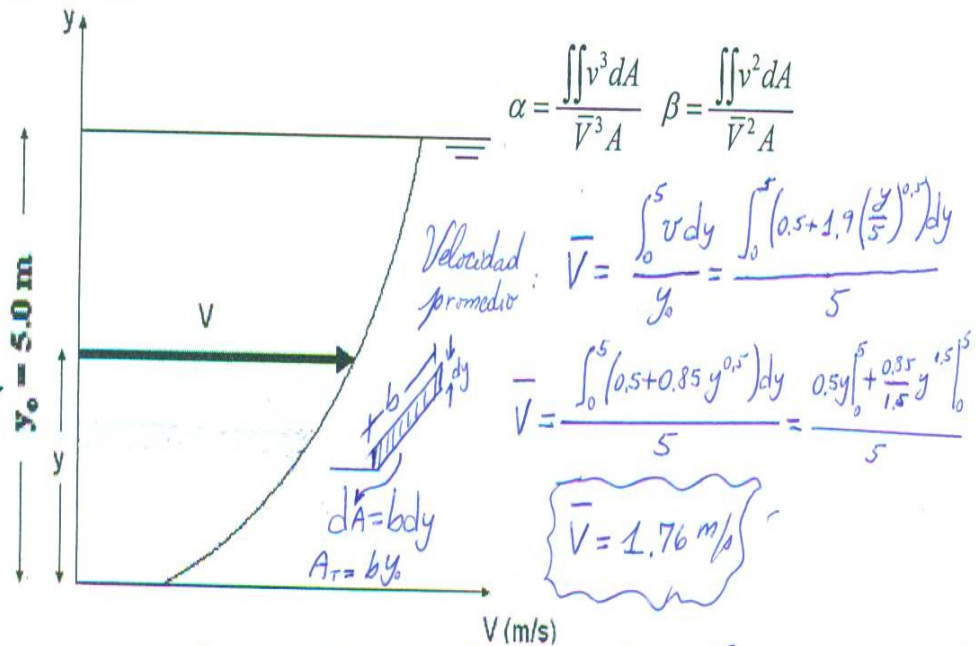 y
y₀ = 5.0 m
y
V
V (m/s)
α = ∬v³dA / V̄³A   β = ∬v²dA / V̄²A
Velocidad promedio: V̄ = ∫₀⁵ v dy / y₀ = ∫₀⁵ (0.5+1.9(y/5)^0.5)dy / 5
V̄ = ∫₀⁵ (0.5+0.85 y^0.5)dy / 5 = 0.5y|₀⁵ + 0.85/1.5 y^1.5|₀⁵ / 5
b
dy
dA = bdy
A_T = by₀
V̄ = 1.76 m/s